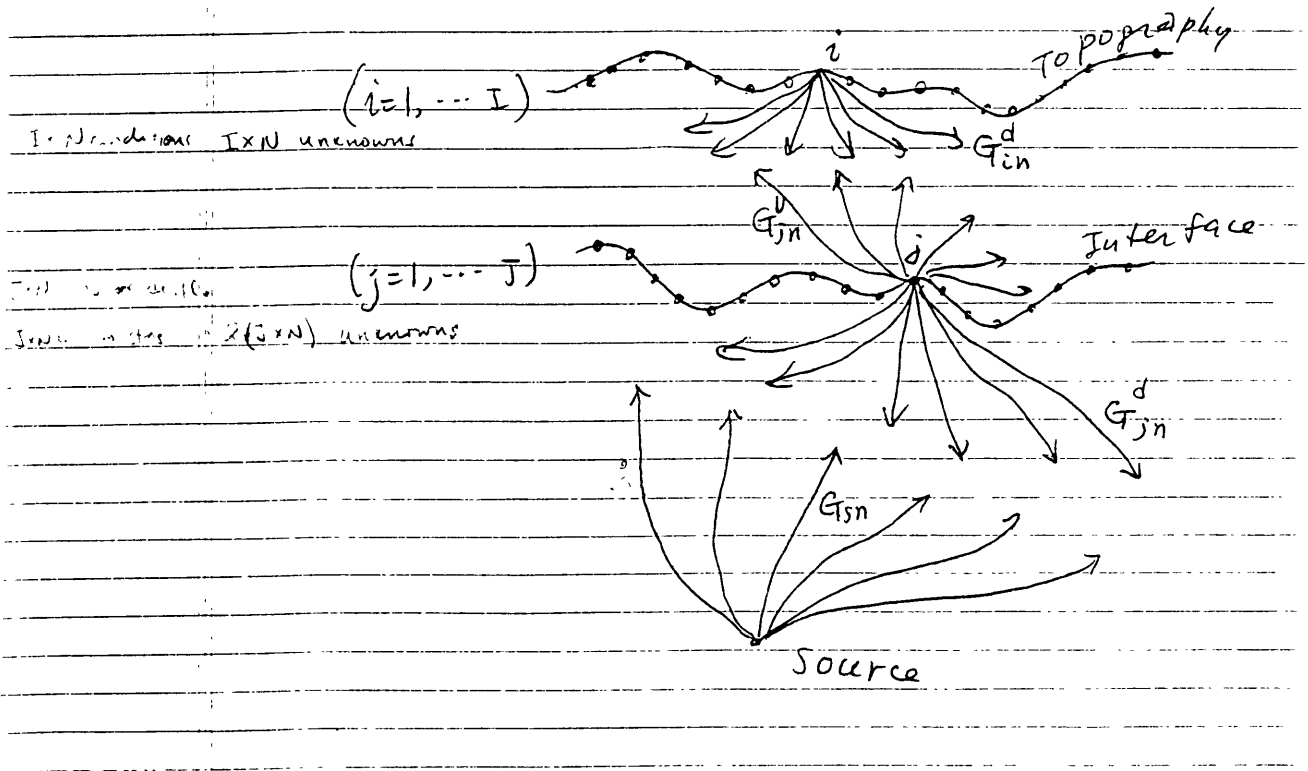 i
Topography
(i=1, ... I)
I×N unknowns
G^d_in
G^u_jn
j
Interface
(j=1, ... J)
2(J×N) unknowns
G^d_jn
G_sn
Source